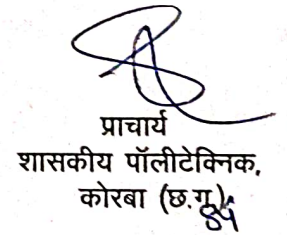 प्राचार्य
शासकीय पॉलीटेक्निक,
कोरबा (छ.ग.)